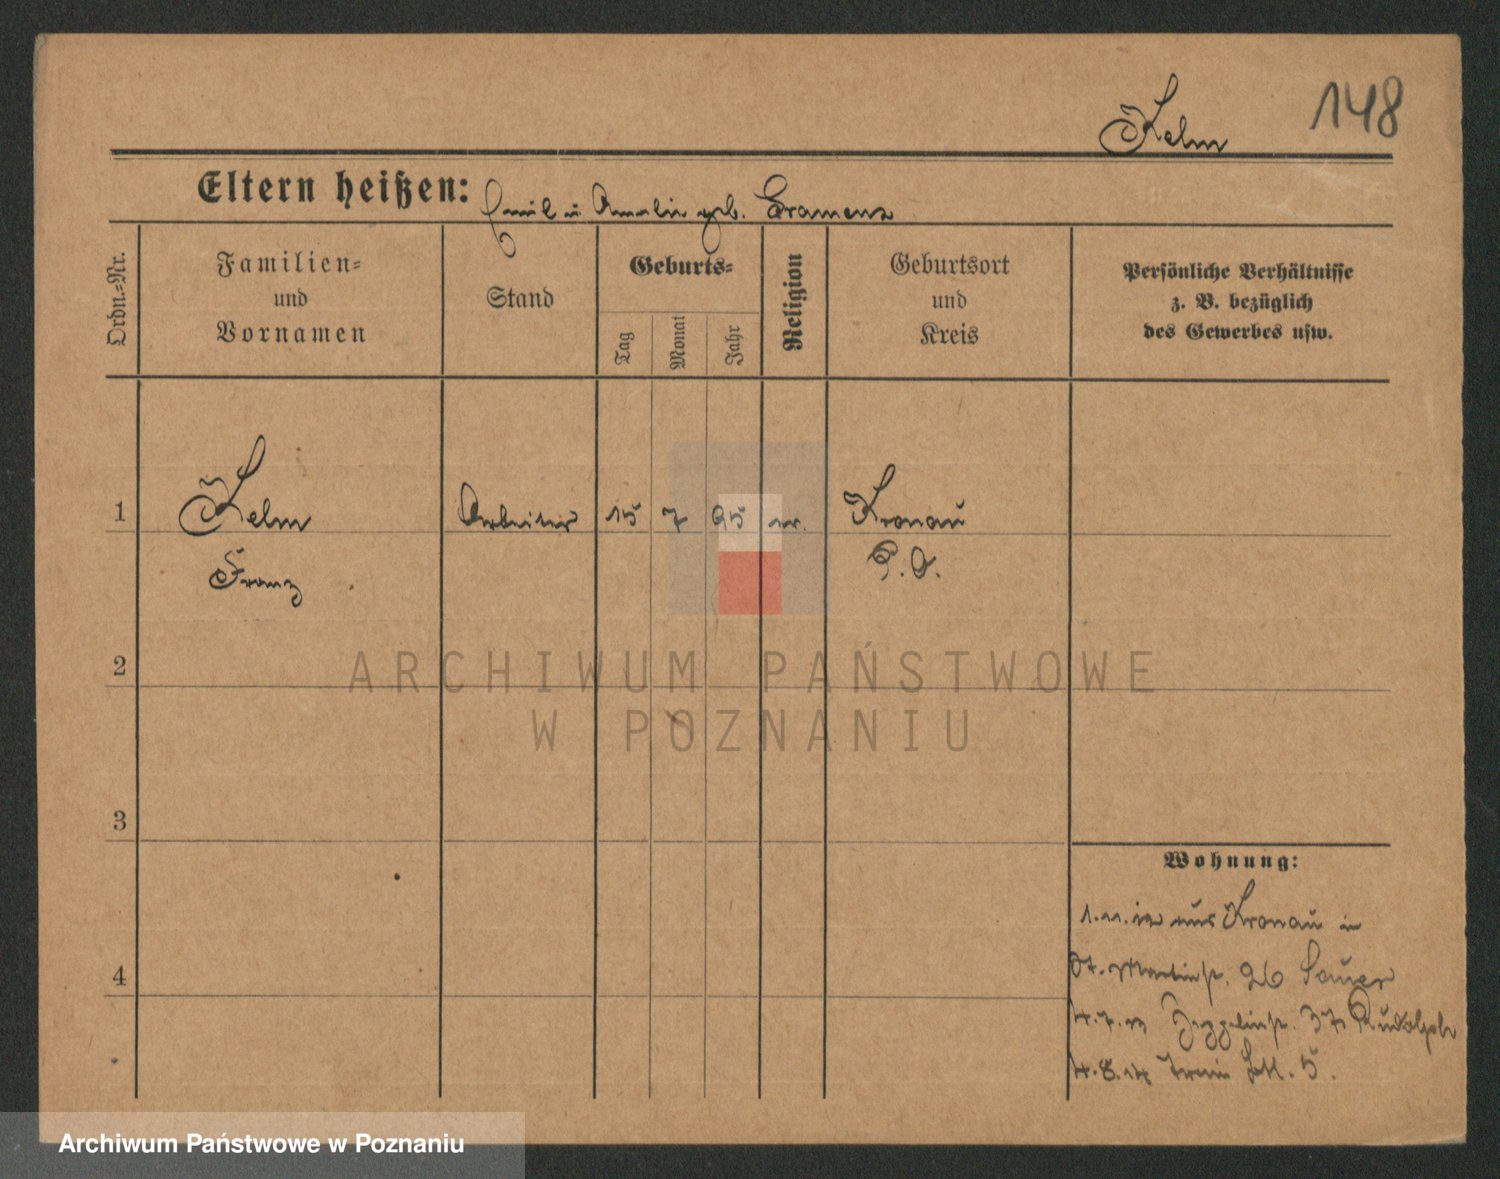 148
Kelm
Eltern heißen: Emil u. Amalie geb. Gramenz
Ordn.-Nr.
Familien-
und
Vornamen
Stand
Geburts-
Tag
Monat
Jahr
Religion
Geburtsort
und
Kreis
Persönliche Verhältnisse
z. B. bezüglich
des Gewerbes usw.
1 Kelm Arbeiter 15 7 95 Kronau
Franz P.O.
2
3
4
Wohnung:
1.11.12 aus Kronau in
St. Martinstr. 26 Sauer
4.7.13 Zeppelinstr. 37 Rudolph
4.8.14 Train 5.
ARCHIWUM PAŃSTWOWE
W POZNANIU
Archiwum Państwowe w Poznaniu